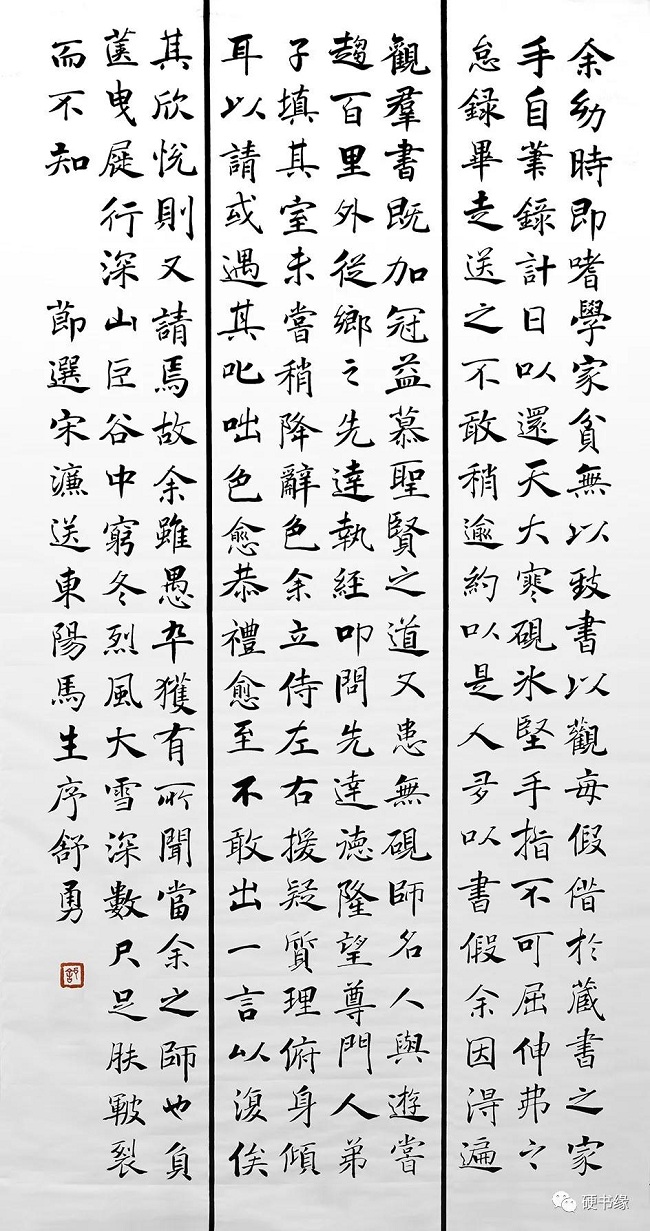 余幼時即嗜學家貧無以致書以觀每假借於藏書之家
手自筆錄計日以還天大寒硯冰堅手指不可屈伸弗之
怠録畢走送之不敢稍逾約以是人多以書假余因得遍
觀羣書既加冠益慕聖賢之道又患無硯師名人與遊嘗
趨百里外從鄉之先達執經叩問先達德隆望尊門人弟
子填其室未嘗稍降辭色余立侍左右援疑質理俯身傾
耳以請或遇其叱咄色愈恭禮愈至不敢出一言以復俟
其欣悅則又請焉故余雖愚卒獲有所聞當余之師也負
篋曳屣行深山巨谷中窮冬烈風大雪深數尺足肤皸裂
而不知 節選宋濂送東陽馬生序舒勇
舒
硬书缘